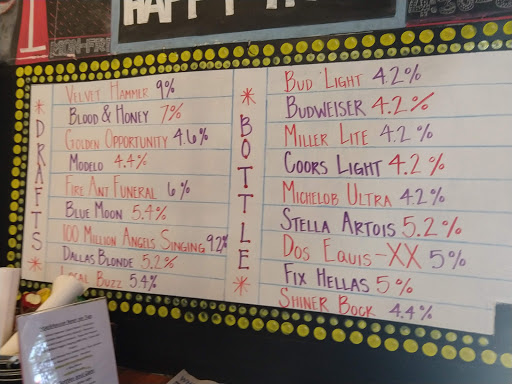 HAPPY
MON-FRI
* DRAFTS *
Velvet Hammer 9%
Blood & Honey 7%
Golden Opportunity 4.6%
Modelo 4.4%
Fire Ant Funeral 6%
Blue Moon 5.4%
100 Million Angels Singing 9.2%
Dallas Blonde 5.2%
Local Buzz 5.4%
* BOTTLE *
Bud Light 4.2%
Budweiser 4.2%
Miller Lite 4.2%
Coors Light 4.2%
Michelob Ultra 4.2%
Stella Artois 5.2%
Dos Equis-XX 5%
Fix Hellas 5%
Shiner Bock 4.4%